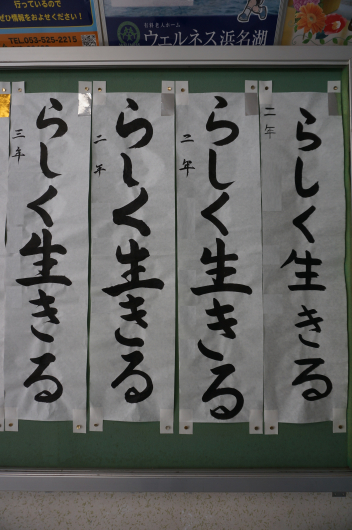 行っているので
ぜひ情報をお寄せください!
TEL.053-525-2215
有料老人ホーム
ウェルネス浜名湖
二年
らしく生きる
二年
らしく生きる
二年
らしく生きる
三年
らしく生きる